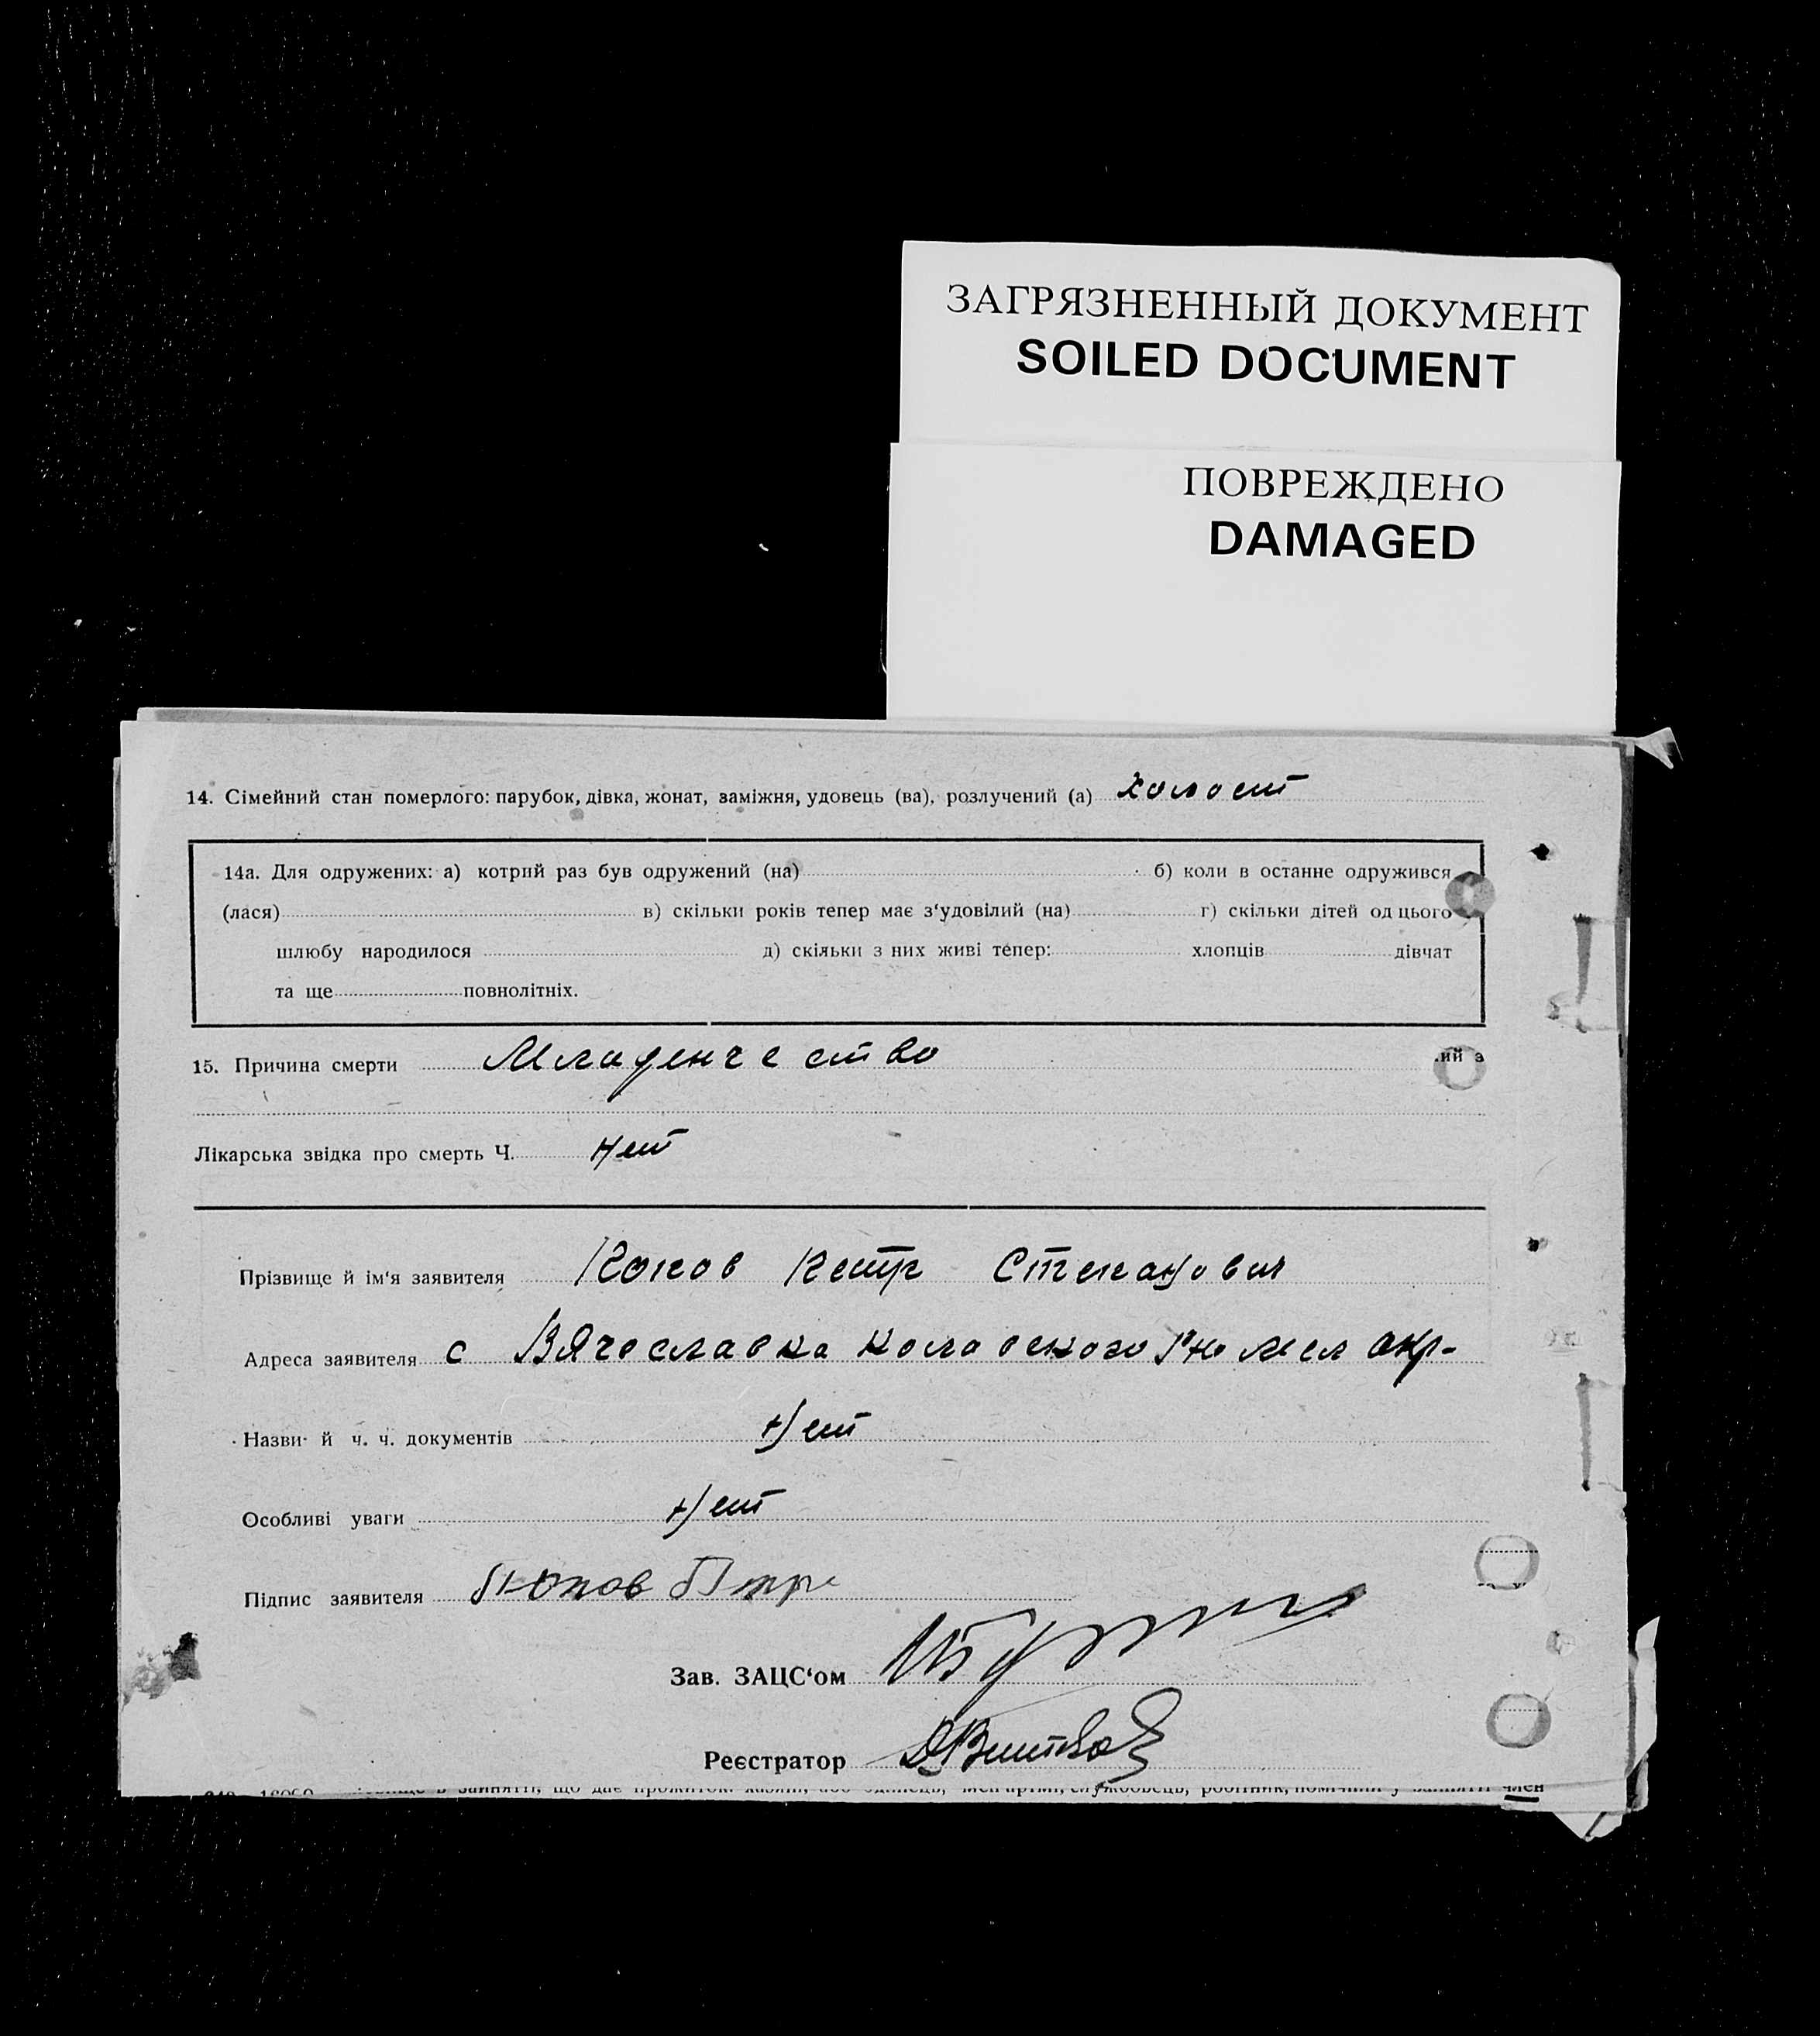 ЗАГРЯЗНЕННЫЙ ДОКУМЕНТ
SOILED DOCUMENT
ПОВРЕЖДЕНО
DAMAGED
14. Сімейний стан померлого: парубок, дівка, жонат, заміжня, удовець (ва), розлучений (а) холост
14а. Для одружених: а) котрий раз був одружений (на) б) коли в останне одружився
(лася) в) скільки років тепер має з‘удовілий (на) г) скільки дітей од цього
шлюбу народилося д) скільки з них живі тепер: хлопців дівчат
та ще повнолітніх.
15. Причина смерти Младенчество
ий з
Лікарська звідка про смерть Ч. Нет
Прізвище й ім‘я заявителя Попов Петр Степанович
Адреса заявителя с Вячеславка Ногайского Р-на Мел окр-
Назви й ч. ч. документів Нет
Особливі уваги Нет
Підпис заявителя Попов Петр
Зав. ЗАЦС‘ом
Реєстратор
в зайнятті, що дає прожиток: хазяїн, або одинець, член артілі, службовець, робітник, помічний у занятті член